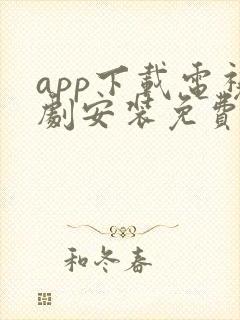 app下载電視
劇安装免費
和冬春